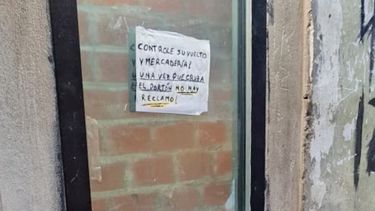 CONTROLE SU VUELTO
Y MERCADERÍA!
UNA VEZ QUE CRUZA
EL PORTÓN NO HAY
RECLAMO!